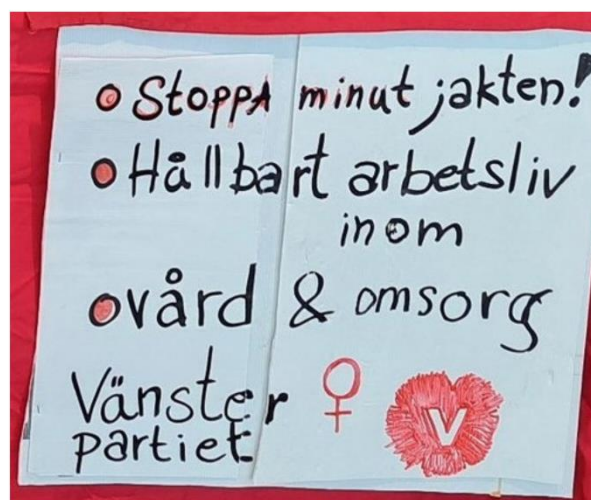 Stoppa minut jakten!
Hållbart arbetsliv
inom
vård & omsorg
Vänster
partiet
V